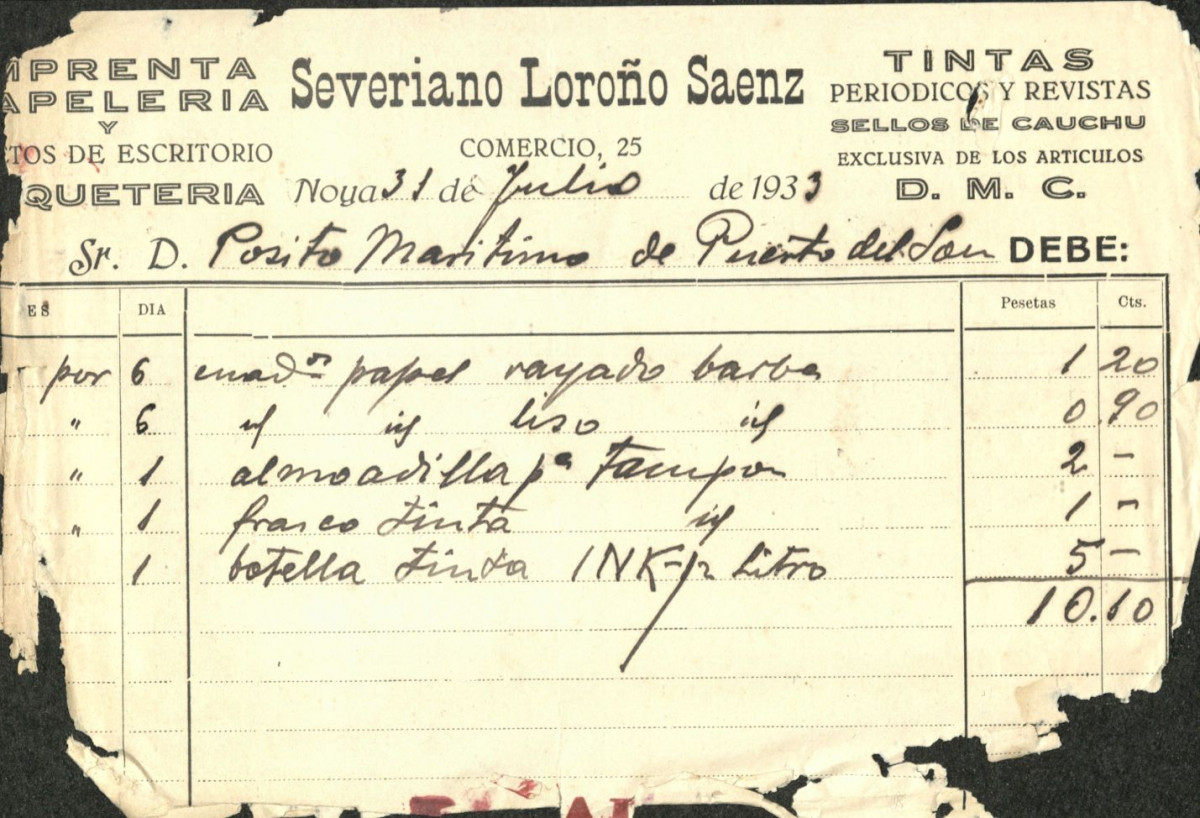 MPRENTA
APELERIA
Y
TOS DE ESCRITORIO
QUETERIA
Severiano Loroño Saenz
COMERCIO, 25
TINTAS
PERIODICOS Y REVISTAS
SELLOS DE CAUCHU
EXCLUSIVA DE LOS ARTICULOS
D. M. C.
Noya 31 de Julio de 1933
Sr. D. Posito Maritimo de Puerto del Son DEBE:
ES DIA Pesetas Cts.
por 6 cuados papel rayado barba 1 20
" 6 id id liso id 0.90
" 1 almoadilla pa tampon 2 -
" 1 frasco tinta id 1 -
1 botella tinta INK-1/2 litro 5 -
10.10